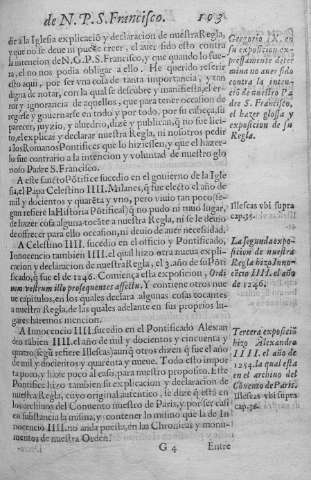 de N. P. S. Francisco. 103
dir à la Iglesia explicació y declaracion de nuestra Regla,
y que no se deve ni puede creer, el auer sido esto contra
la intencion de N. G. P. S. Francisco, y que quando lo fue-
ra, el no nos podia obligar a ello. He querido referir
esto aqui, por ser vna cosa de tanta importancia, y tan
digna de notar, con la qual se descubre y manifiesta, el er-
ror y ignorancia de aquellos, que para tener ocasion de
regirse y gouernarse en todo y por todo, por su cabeça, su
parecer, y juyzio, y aluedrio, dizé y publican, q̃ no fue lici-
to, el explicar y declarar nuestra Regla, ni nosotros pedir
a los Romanos Pontifices que lo hiziessen, y que el hazer-
lo fue contrario a la intencion y voluntad de nuestro glo
rioso Padre S. Francisco.
A este santo Pótifice sucedio en el gouierno de la Igle
sia, el Papa Celestino IIII. Milanes, q̃ fue electo el año de
mil y docientos y quarẽta y vno, pero viuio tan poco (se-
gan refiere la Historia Pótifical) q̃ no pudo ni tuuo lugar,
de hazer cosa alguna tocãte a nuestra Regla, ni se le deuio
de ofrecer para ello ocasion, ni deuio de auer necesidad.
A Celestino IIII. sucedio en el officio y Pontificado,
Innocencio tambien IIII. el qual hizo otra nueua expli
cacion y declaracion de nuestra Regla, el año 3. de su Pótí
ficado, q̃ fue el de 1246. Comiença esta exposicion, Ordi
nem vestrum illo prosequentes affectu. Y contiene otros nue
ue capitulos, en los quales declara algunas cosas tocantes
a nuestra Regla, de las quales adelante en sus proprios lu-
gares haremos mencion.
A Innocencio IIII. sucedio en el Pontificado Alexan
dro tãbien IIII. el año de mil y docientos y cincuenta y
quatro (segũ refiere Illescas) aunq̃ otros dizen q̃ fue el año
de mil y docientos y quarẽta y nueue. Todo esto impor
ta poco, y haze poco al caso, para nuestro proposito. Este
Pontifice hizo tambien su explicacion y declaracion de
nuestra Regla, cuyo original autentico, se dize q̃ està en
los archiuos del Conuento nuestro de Paris, y por ser casi
en substancia la misma, y contener lo mismo que la de In
nocencio IIII. no anda puesta, en las Chronicas y monu-
mentos de nuestra Orden.
G 4 Entre
Gregorio IX. en
su exposicion ex-
pressamente deter
mina no auer sido
contra la inten-
ció de nuestro Pa
dre S. Francisco,
el hazer glossa y
exposicion de su
Regla.
Illescas vbi supra
cap. 35.
La segunda expo-
sicion de nuestra
Regla hizo Inno-
cẽcio IIII. el año
de 1246.
Tercera exposició
hizo Alexandro
IIII. el año de
1254. la qual esta
en el archiuo del
Cõuento de Paris.
Illescas vbi sup̃ra
cap. 36.